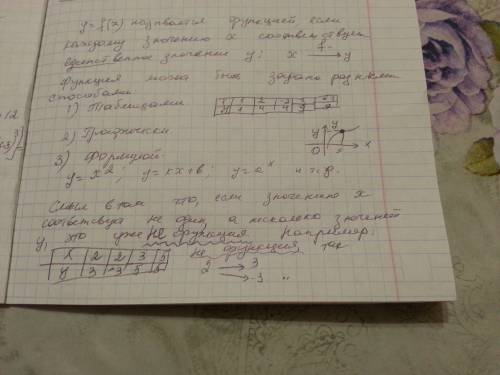 y = f(x) называется функцией, если
каждому значению x соответствует
единственное значение y: x →f y
Функция может быть задана разными
способами
1) Таблицами
2) Графически
y
0 x
3) Формулой:
y = x²; y = kx + b; y = aˣ и т.д.
Смысл в том что, если значению x
соответствует не один, а несколько значений
y, это уже не функция Например:
x 2 2 3 5
y 3 -3 5 5
не функция, так
2 → 3
→ -3